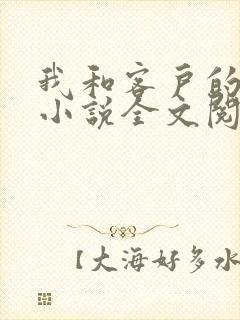 我和客户的
小说全文阅
【大海好多水